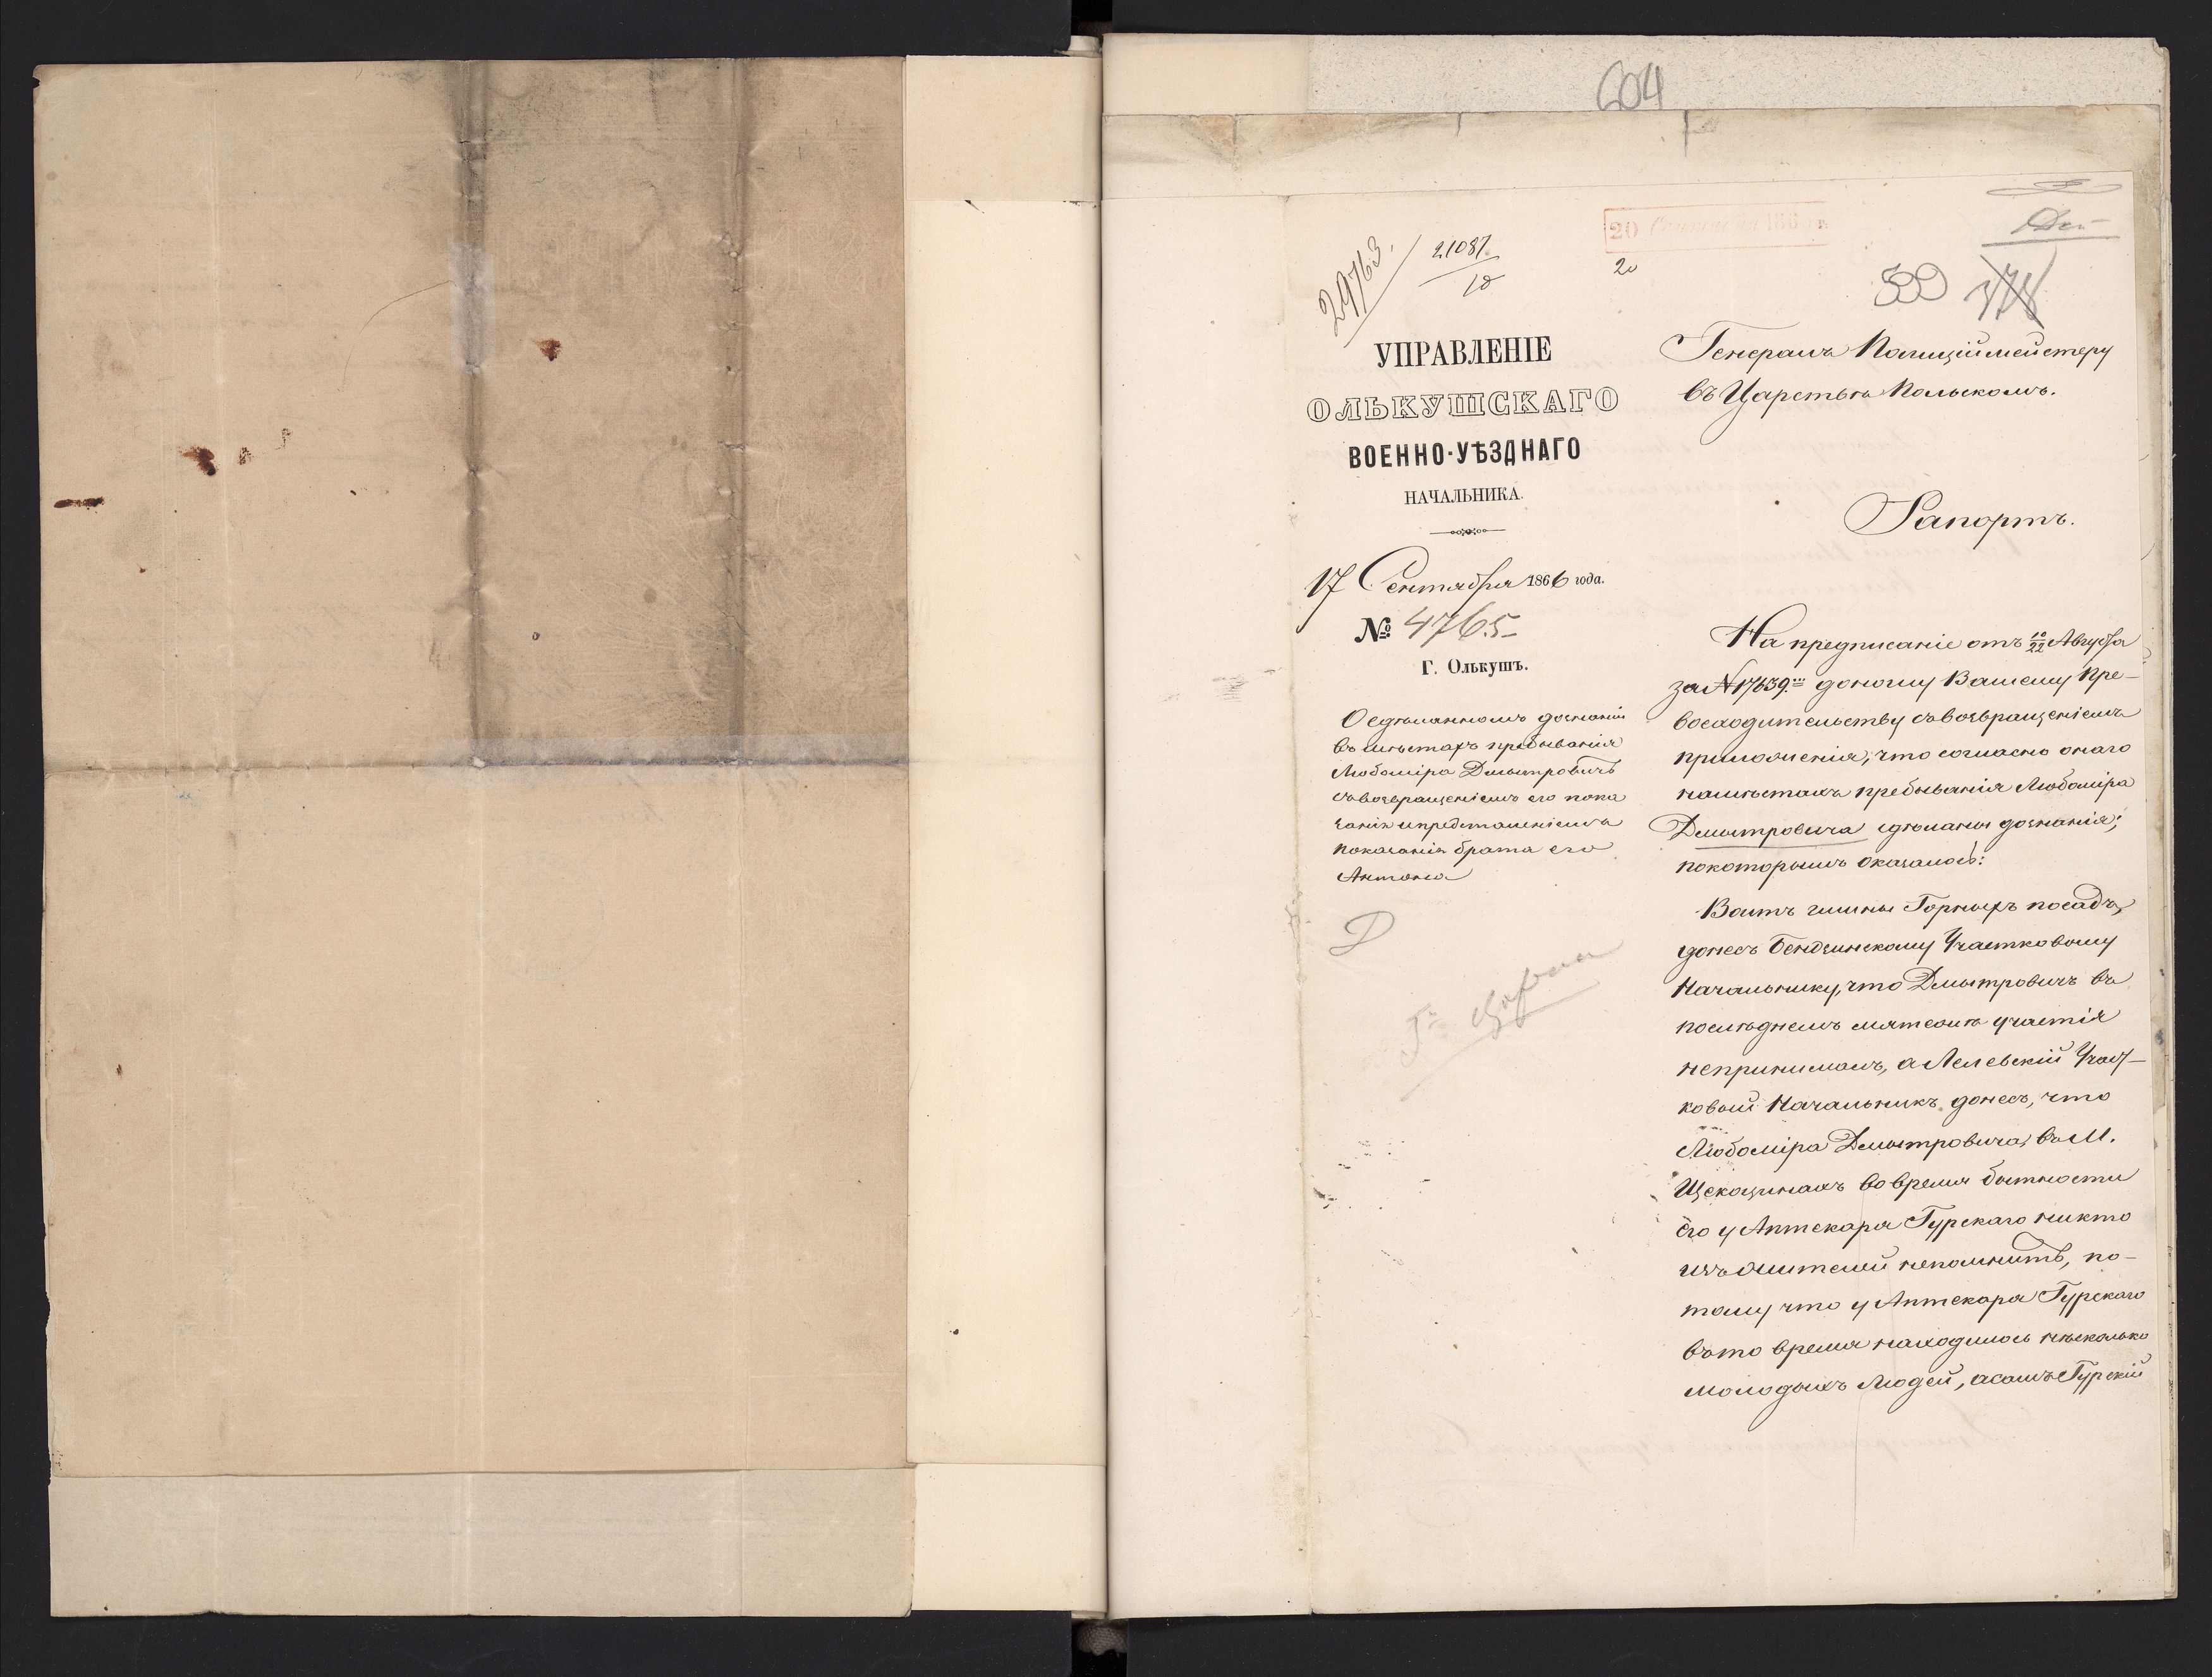 604
20 Сентября 186
20
29763.
21087.
10
599
378
УПРАВЛЕНІЕ
ОЛЬКУШСКАГО
ВОЕННО-УѢЗДНАГО
НАЧАЛЬНИКА.
17 Сентября 1866 года.
№ 4765
Г. Олькушъ.
О сдѣланномъ дознаніи
въ мѣстахъ пребыванія
Любоміра Дмытровичъ
съ возвращеніемъ его пока
занія и представленіемъ
показанія брата его
Антона
Д
Генералъ Полиціймейстеру
въ Царствѣ Польскомъ.
Рапортъ.
На предписаніе отъ 10/22 Августа
за № 17639. доношу Вашему Пре-
восходительству съ возвращеніемъ
приложенія, что согласно онаго
на мѣстахъ пребыванія Любоміра
Дмытровича сдѣланы дознанія;
по которымъ оказалось:
Воитъ гмины Горныхъ посадъ,
донесъ Бендзинскому Участковому
Начальнику, что Дмытровичъ въ
послѣднемъ мятежѣ участія
непринималъ, а Лелевскій Участ-
ковый Начальникъ донесъ, что
Любоміра Дмытровича, въ М.
Щекоцинахъ во время бытности
его у Аптекаря Гурскаго никто
изъ жителей непомнитъ, по-
тому что у Аптекаря Гурскаго
въ то время находилось нѣсколько
молодыхъ людей, а самъ Гурскій